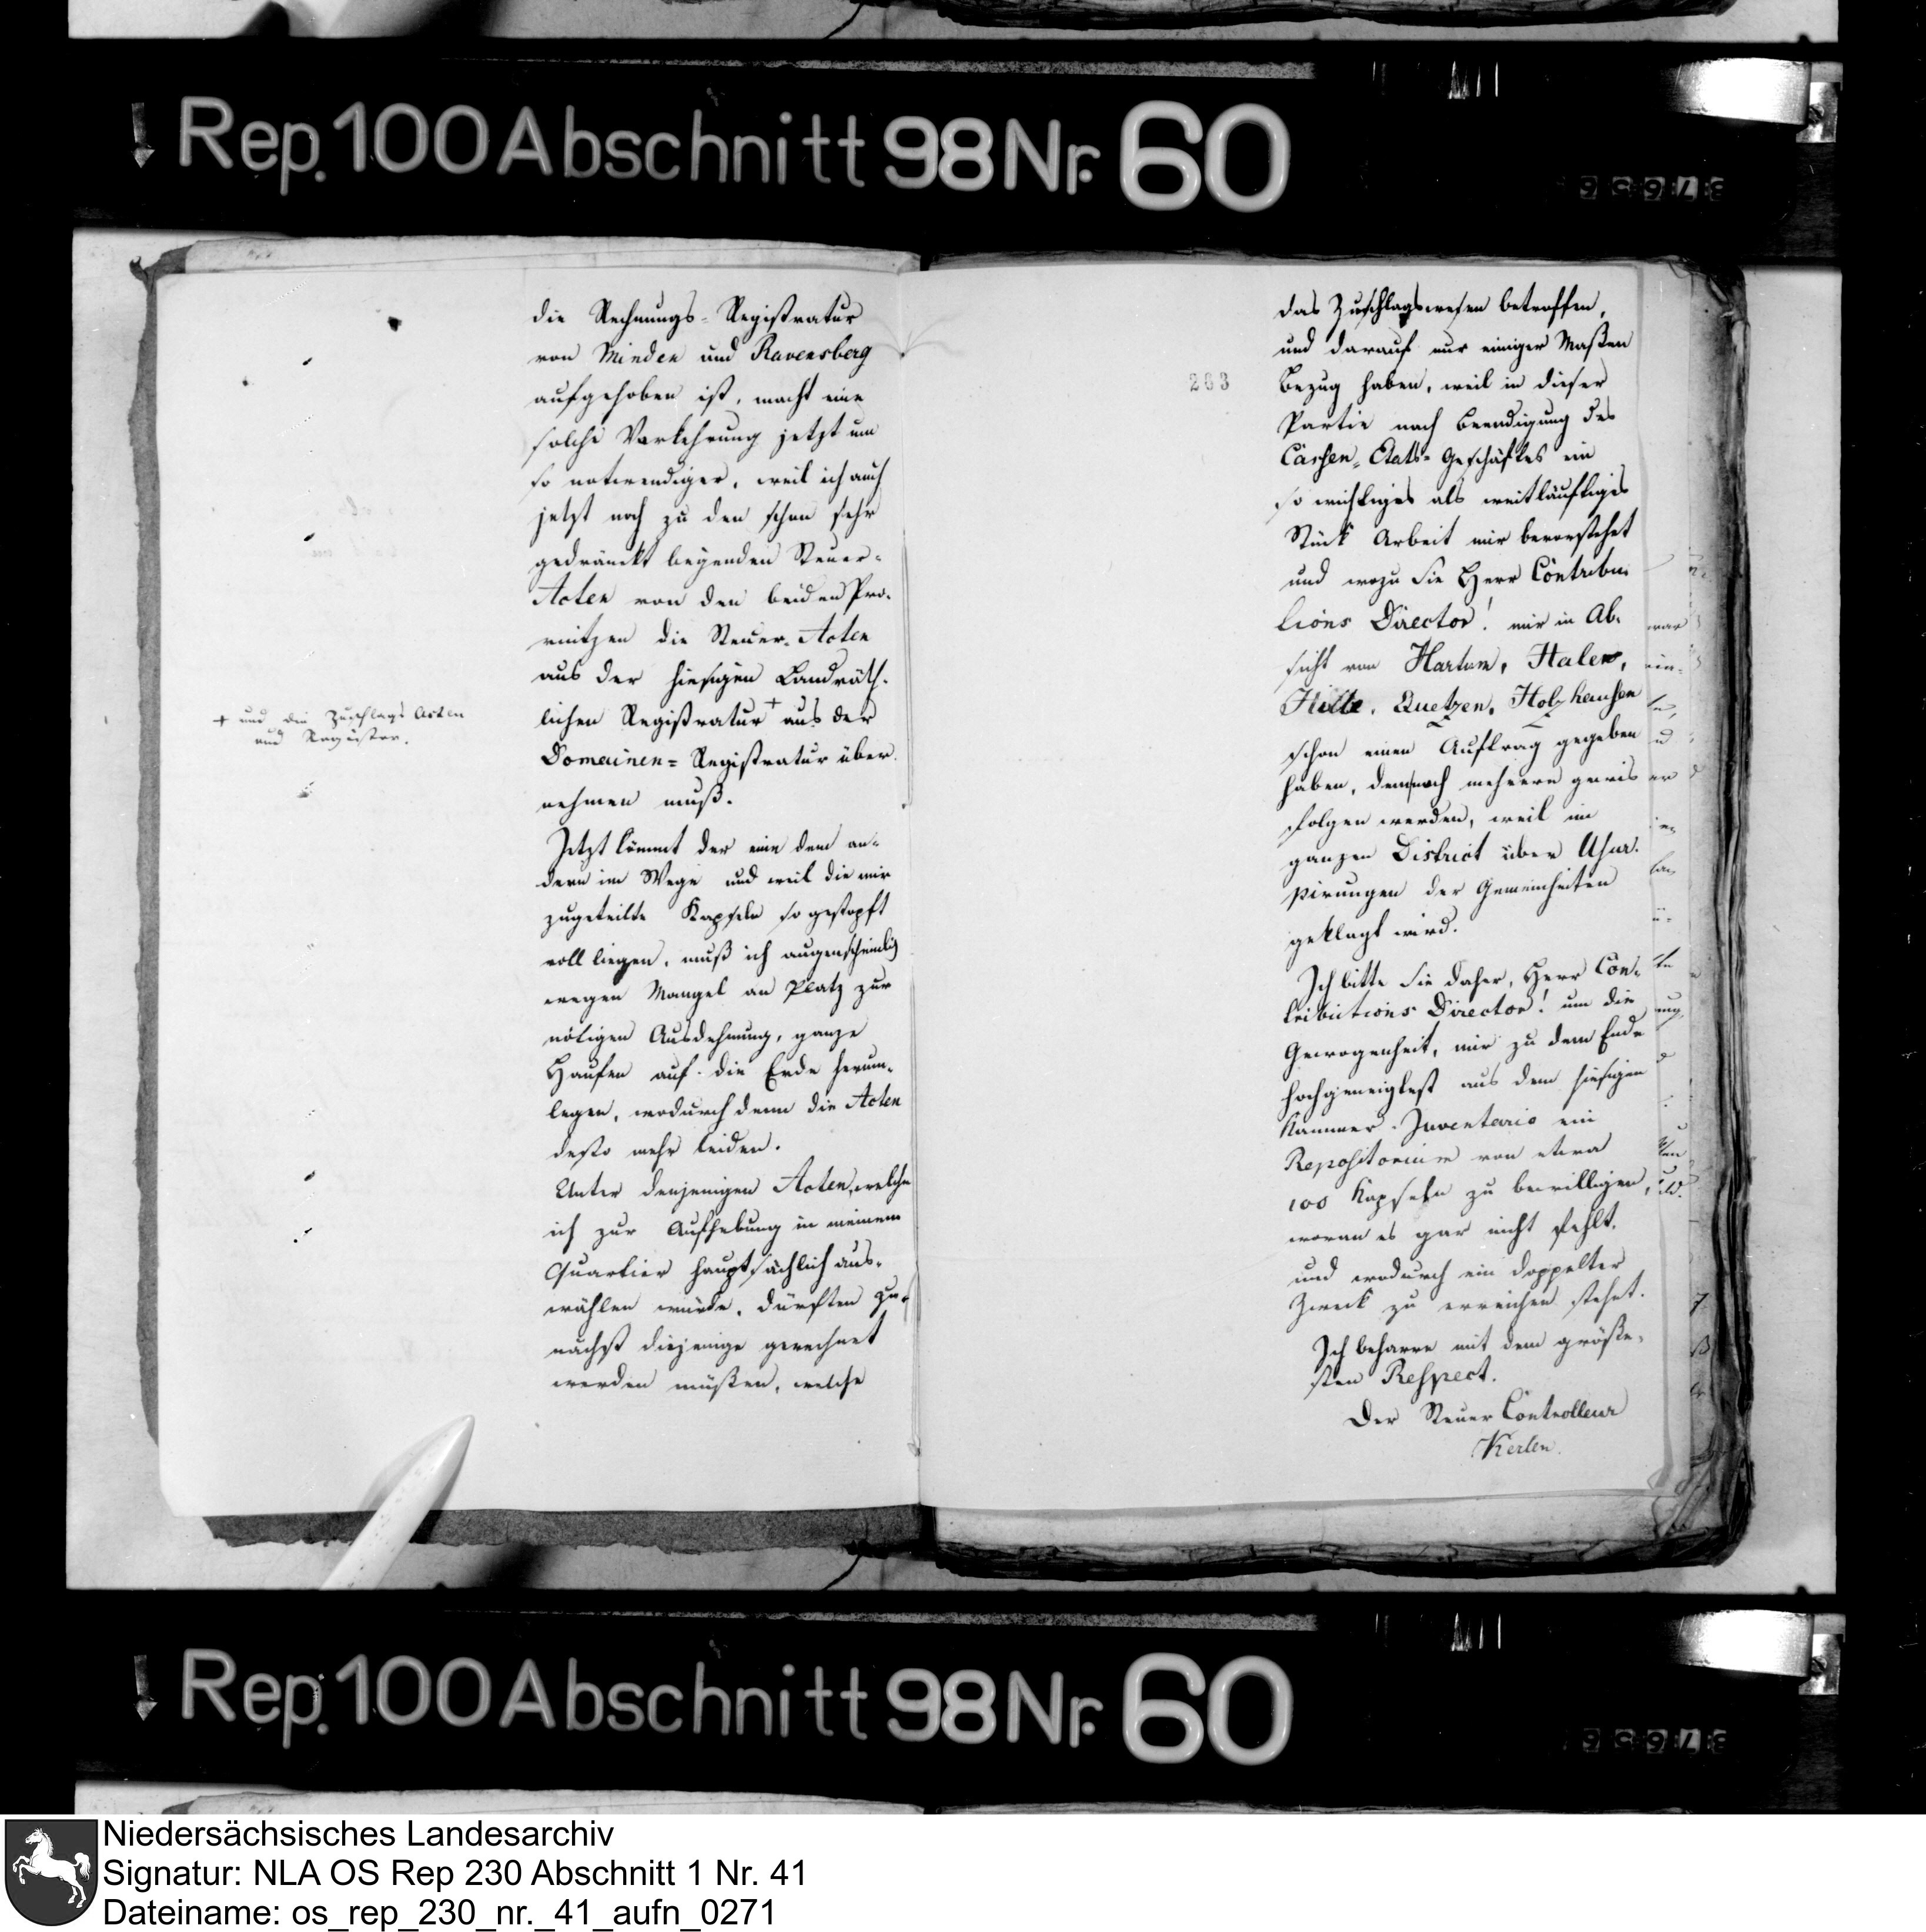 Rep. 100 Abschnitt 98 Nr. 60
die Rechnungs-Registratur
von Minden und Ravensberg
aufgehoben ist, macht eine
solche Vorkehrung jetzt um
so notwendiger, weil ich auch
jetzt noch zu den schon sehr
gedränckt liegenden Steuer-
Acten von den beiden Pro-
vintzen die Steuer-Acten
aus der hiesigen Landräth-
lichen Registratur + aus der
Domainen-Registratur über
nehmen muß.
+ und die Zuschlags Acten
und Register.
Jetzt kömmt der eine dem an-
dern im Wege und weil die mir
zugeteilte Kapseln so gestopft
voll liegen, muß ich augenscheinlich
wegen Mangel an Platz zur
nötigen Ausdehnung, ganze
Haufen auf die Erde herum-
legen, wodurch denn die Acten
desto mehr leiden.
Unter denjenigen Acten, welche
ich zur Aufhebung in meinem
Quartier hauptsächlich aus-
wählen würde, dürften zu-
nächst diejenige gerechnet
werden müßen, welche
203
das Zuschlagswesen betreffen,
und darauf nur einiger Maßen
Bezug haben, weil in dieser
Partie nach Beendigung des
Cassen-Etats-Geschäftes ein
so wichtiges als weitläuftiges
Stück Arbeit mir bevorstehet
und wozu Sie Herr Contribu-
tions Director! mir in Ab-
sicht von Hartum, Halen,
Hille, Quetzen, Holzhausen
schon einen Auftrag gegeben
haben, dem noch mehrere gewis
folgen werden, weil im
ganzen District über Usur-
pirungen der Gemeinheiten
geklagt wird.
Ich bitte Sie daher, Herr Con-
tributions Director! um die
Gewogenheit, mir zu dem Ende
hochgeneigtest aus dem hiesigen
Kammer-Inventario ein
Repositorium von etwa
100 Kapseln zu bewilligen,
woran es gar nicht fehlt,
und wodurch ein doppelter
Zweck zu erreichen stehet.
Ich beharre mit dem größe-
sten Respect.
Der Steuer Controlleur
Kerlen.
Rep. 100 Abschnitt 98 Nr. 60
Niedersächsisches Landesarchiv
Signatur: NLA OS Rep 230 Abschnitt 1 Nr. 41
Dateiname: os_rep_230_nr._41_aufn_0271